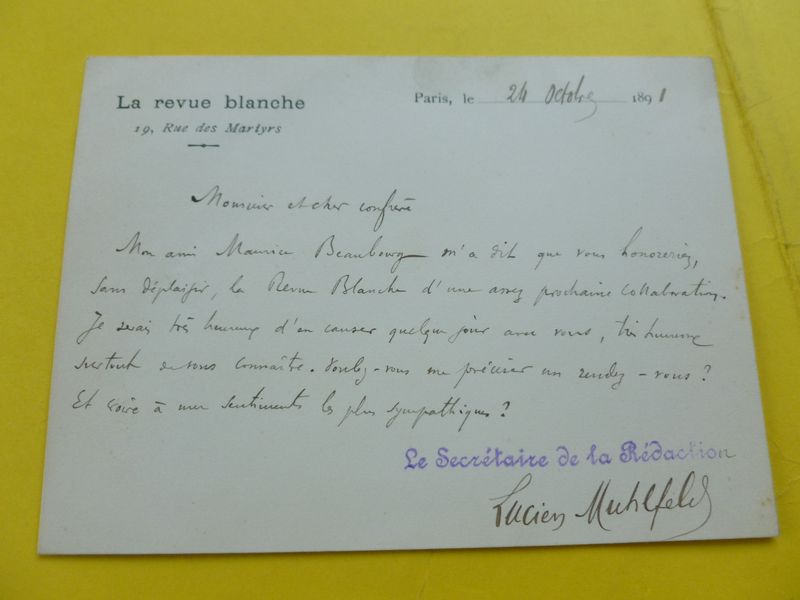 La revue blanche
19, Rue des Martyrs
Paris, le 24 Octobre 1891
Monsieur et cher confrère
Mon ami Maurice Beaubourg m'a dit que vous honoreriez,
sans déplaisir, la Revue Blanche d'une assez prochaine collaboration.
Je serais très heureux d'en causer quelque jour avec vous, très heureux
surtout de vous connaître. Voulez-vous me préciser un rendez-vous?
Et croire à mes sentiments les plus sympathiques?
Le Secrétaire de la Rédaction
Lucien Muhlfeld